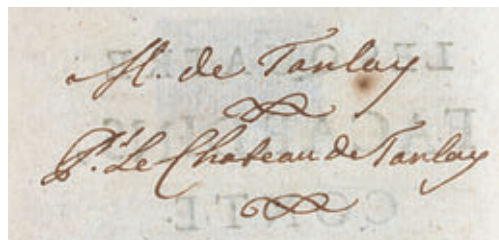 M. de Tanlay
P.r Le Chateau de Tanlay